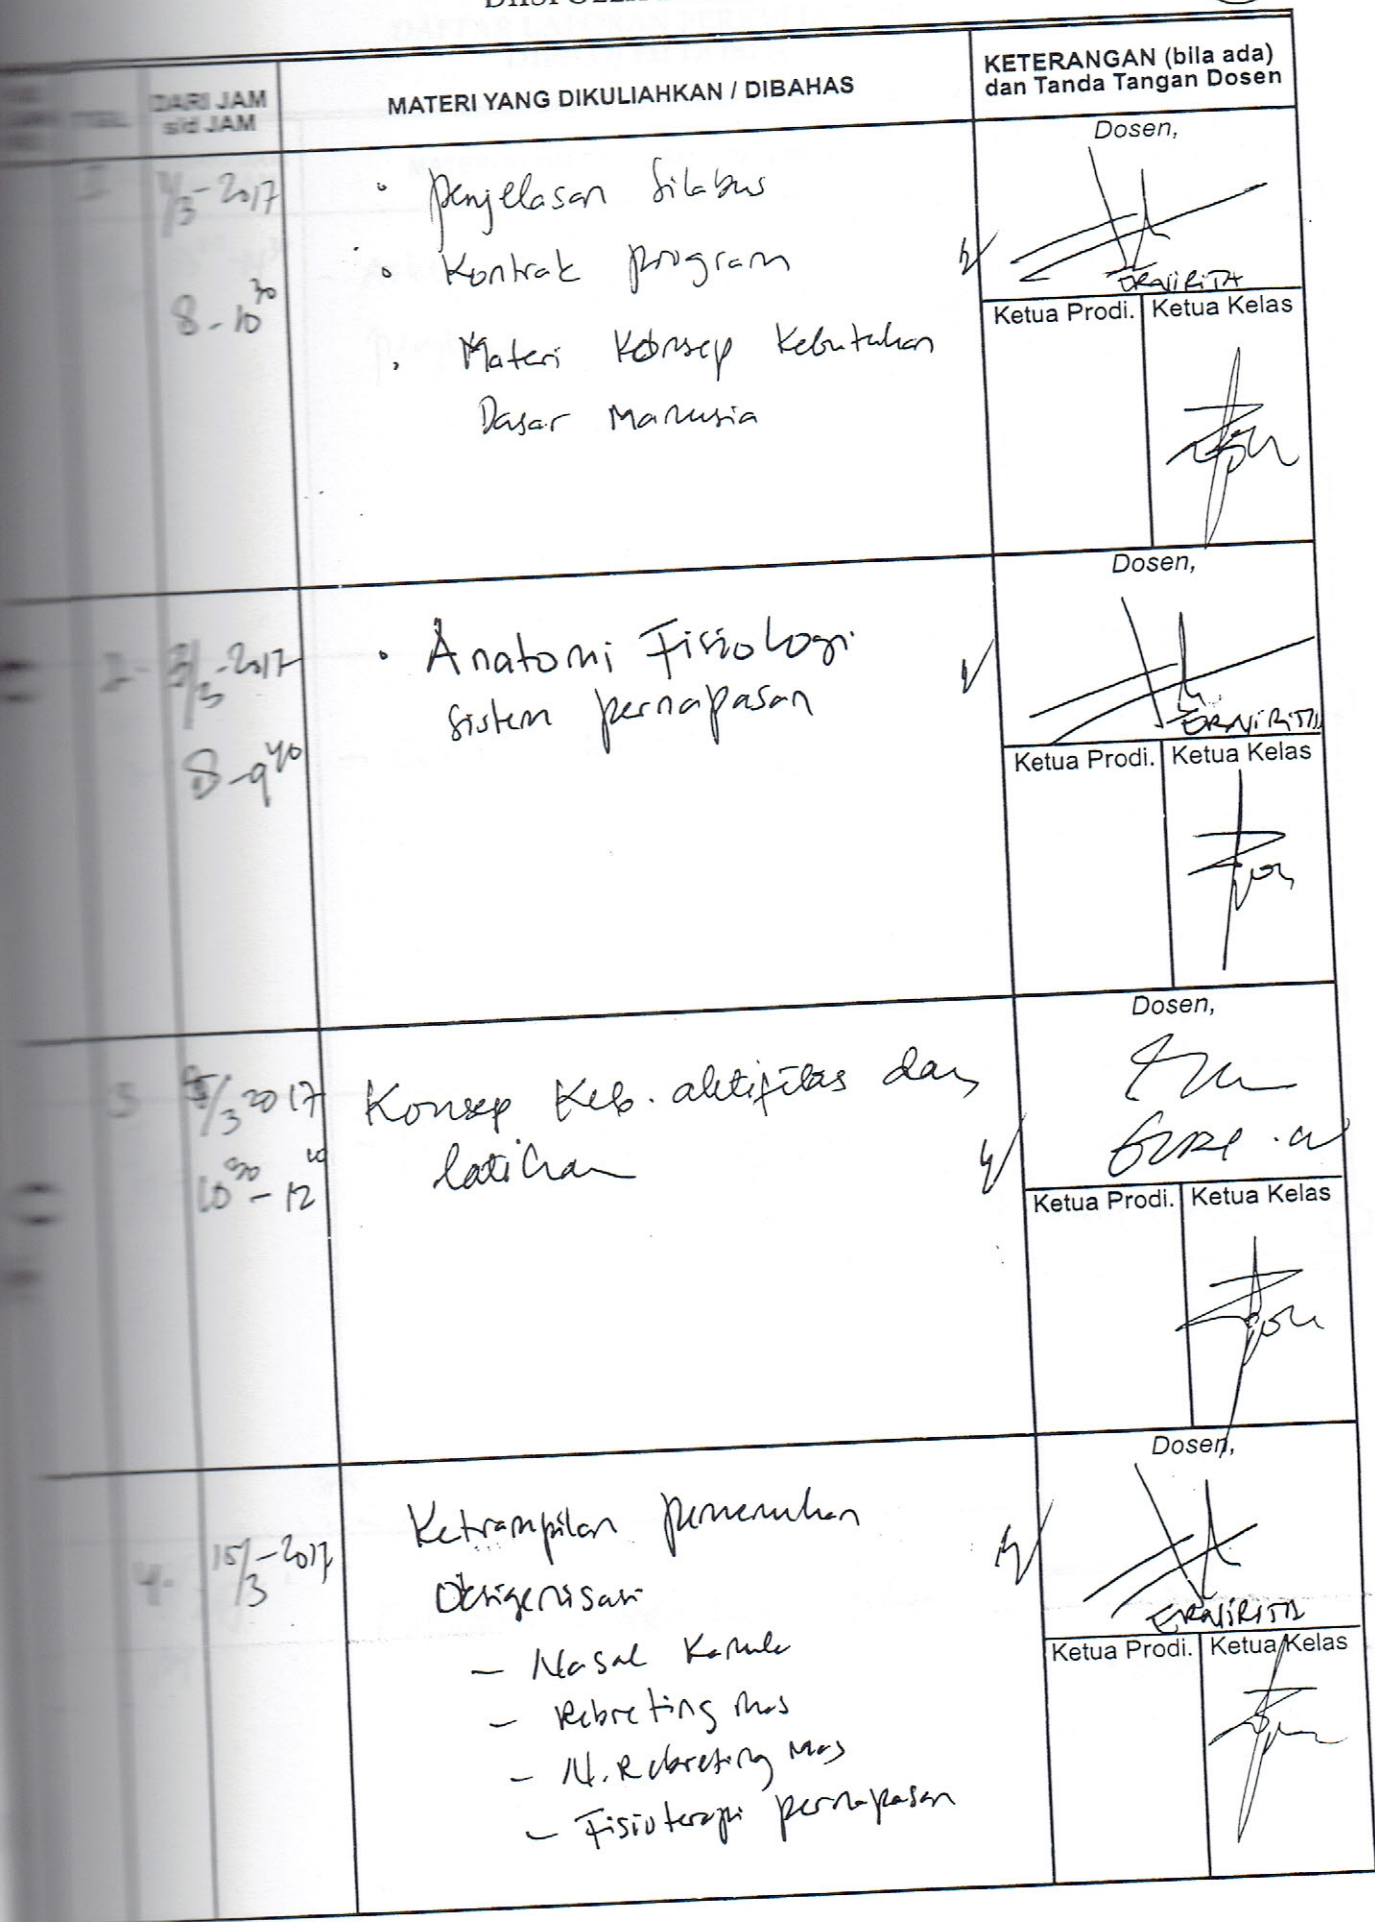 TGL.
DARI JAM
s/d JAM
MATERI YANG DIKULIAHKAN / DIBAHAS
KETERANGAN (bila ada)
dan Tanda Tangan Dosen
I
/3-2017
8 - 10 30
• Penjelasan Silabus
• Kontrak program
• Materi Konsep Kebutuhan
Dasar Manusia
Dosen,
ERNIRITA
Ketua Prodi.
Ketua Kelas
/3-2017
8 - 9 40
• Anatomi Fisiologi
Sistem pernapasan
Dosen,
ERNIRITA
Ketua Prodi.
Ketua Kelas
3
/3 2017
10 30 - 12 10
Konsep Keb. aktifitas dan
latihan
Dosen,
Ketua Prodi.
Ketua Kelas
4.
15/3-2017
Ketrampilan pemenuhan
Oksigenisasi
- Nasal Kanule
- Rebreting mas
- N. Rebreting mas
- Fisioterapi pernapasan
Dosen,
ERNIRITA
Ketua Prodi.
Ketua Kelas